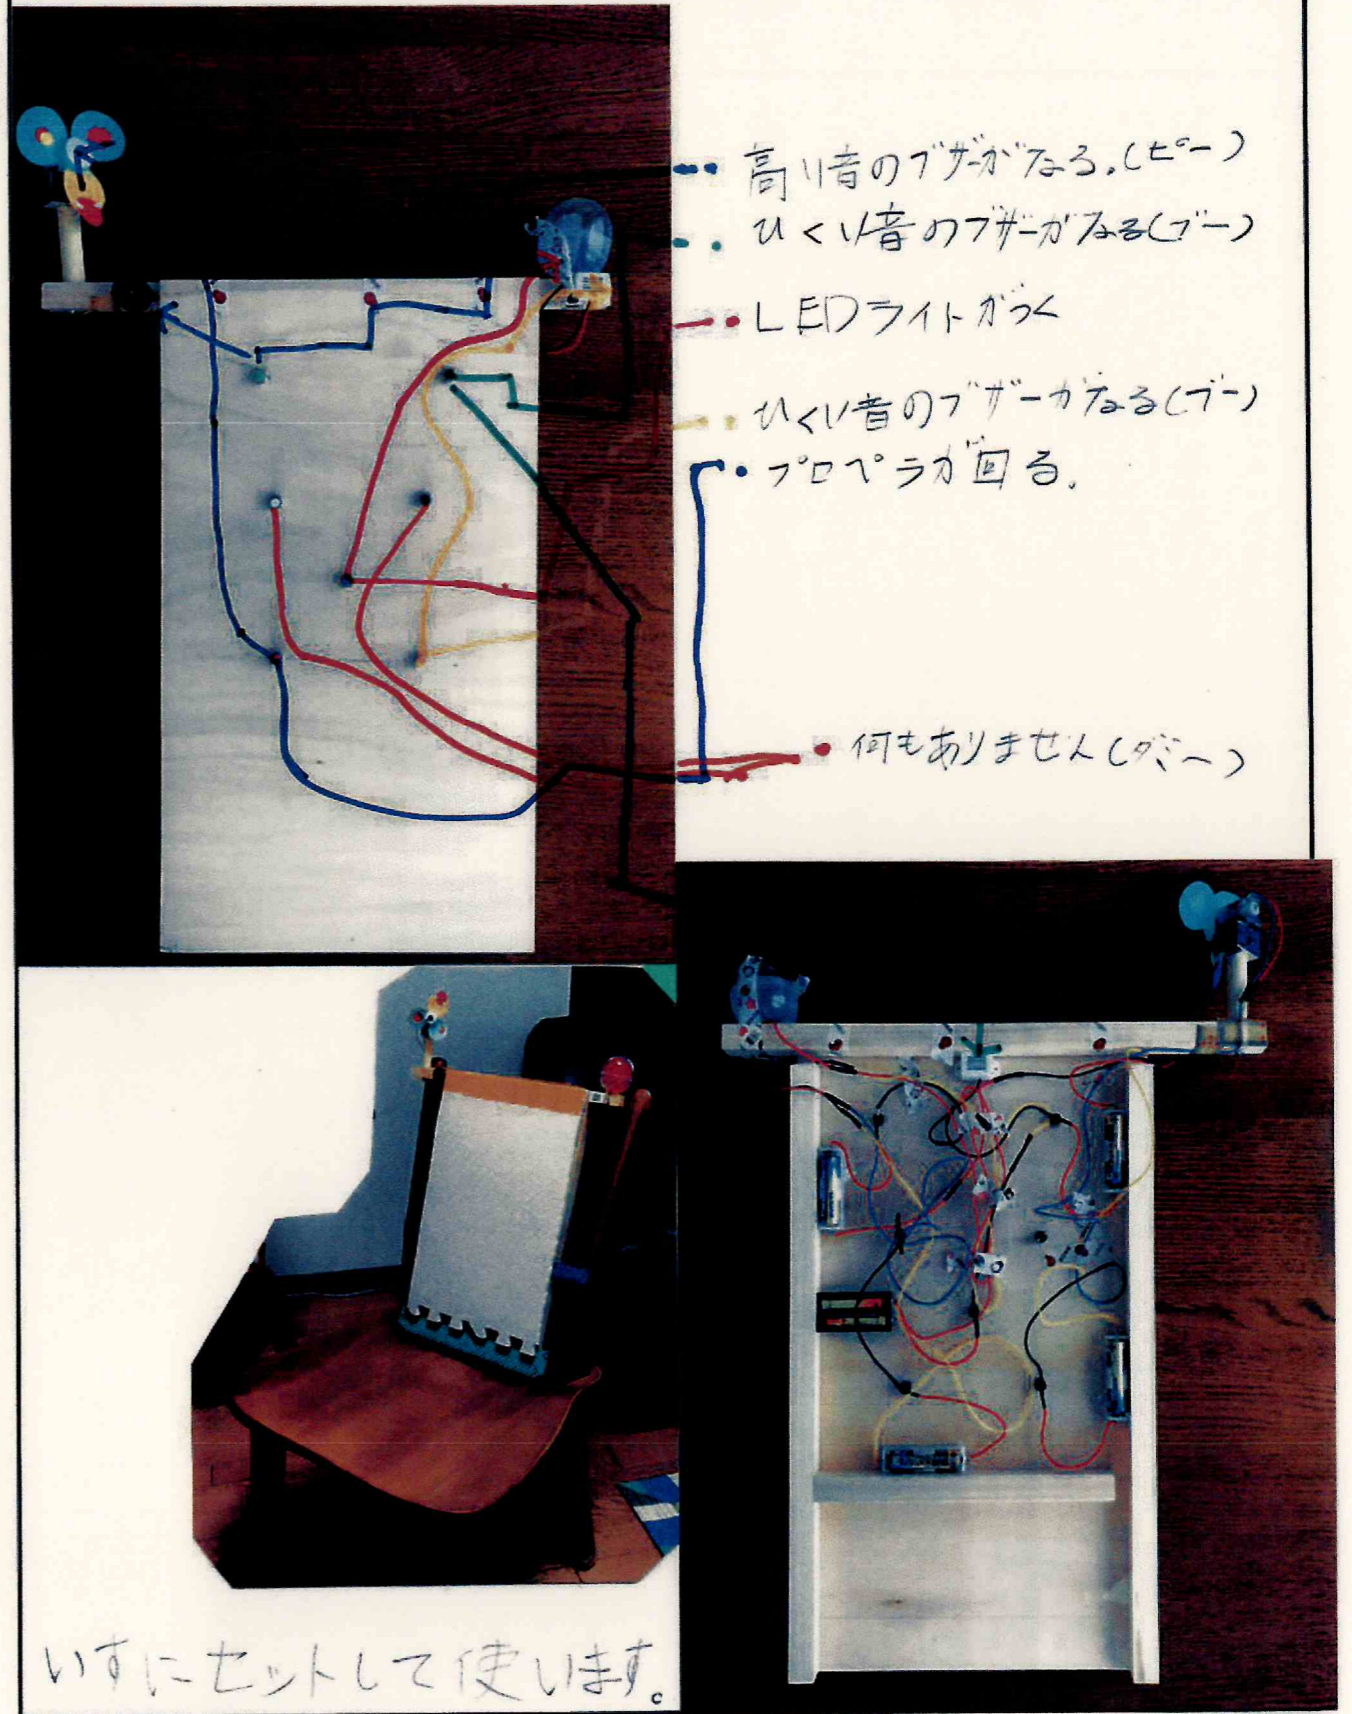 高い音のブザーがなる.(ピー)
ひくい音のブザーがなる(ブー)
LEDライトがつく
ひくい音のブザーがなる(ブー)
プロペラが回る.
何もありません(ダミー)
いすにセットして使います。